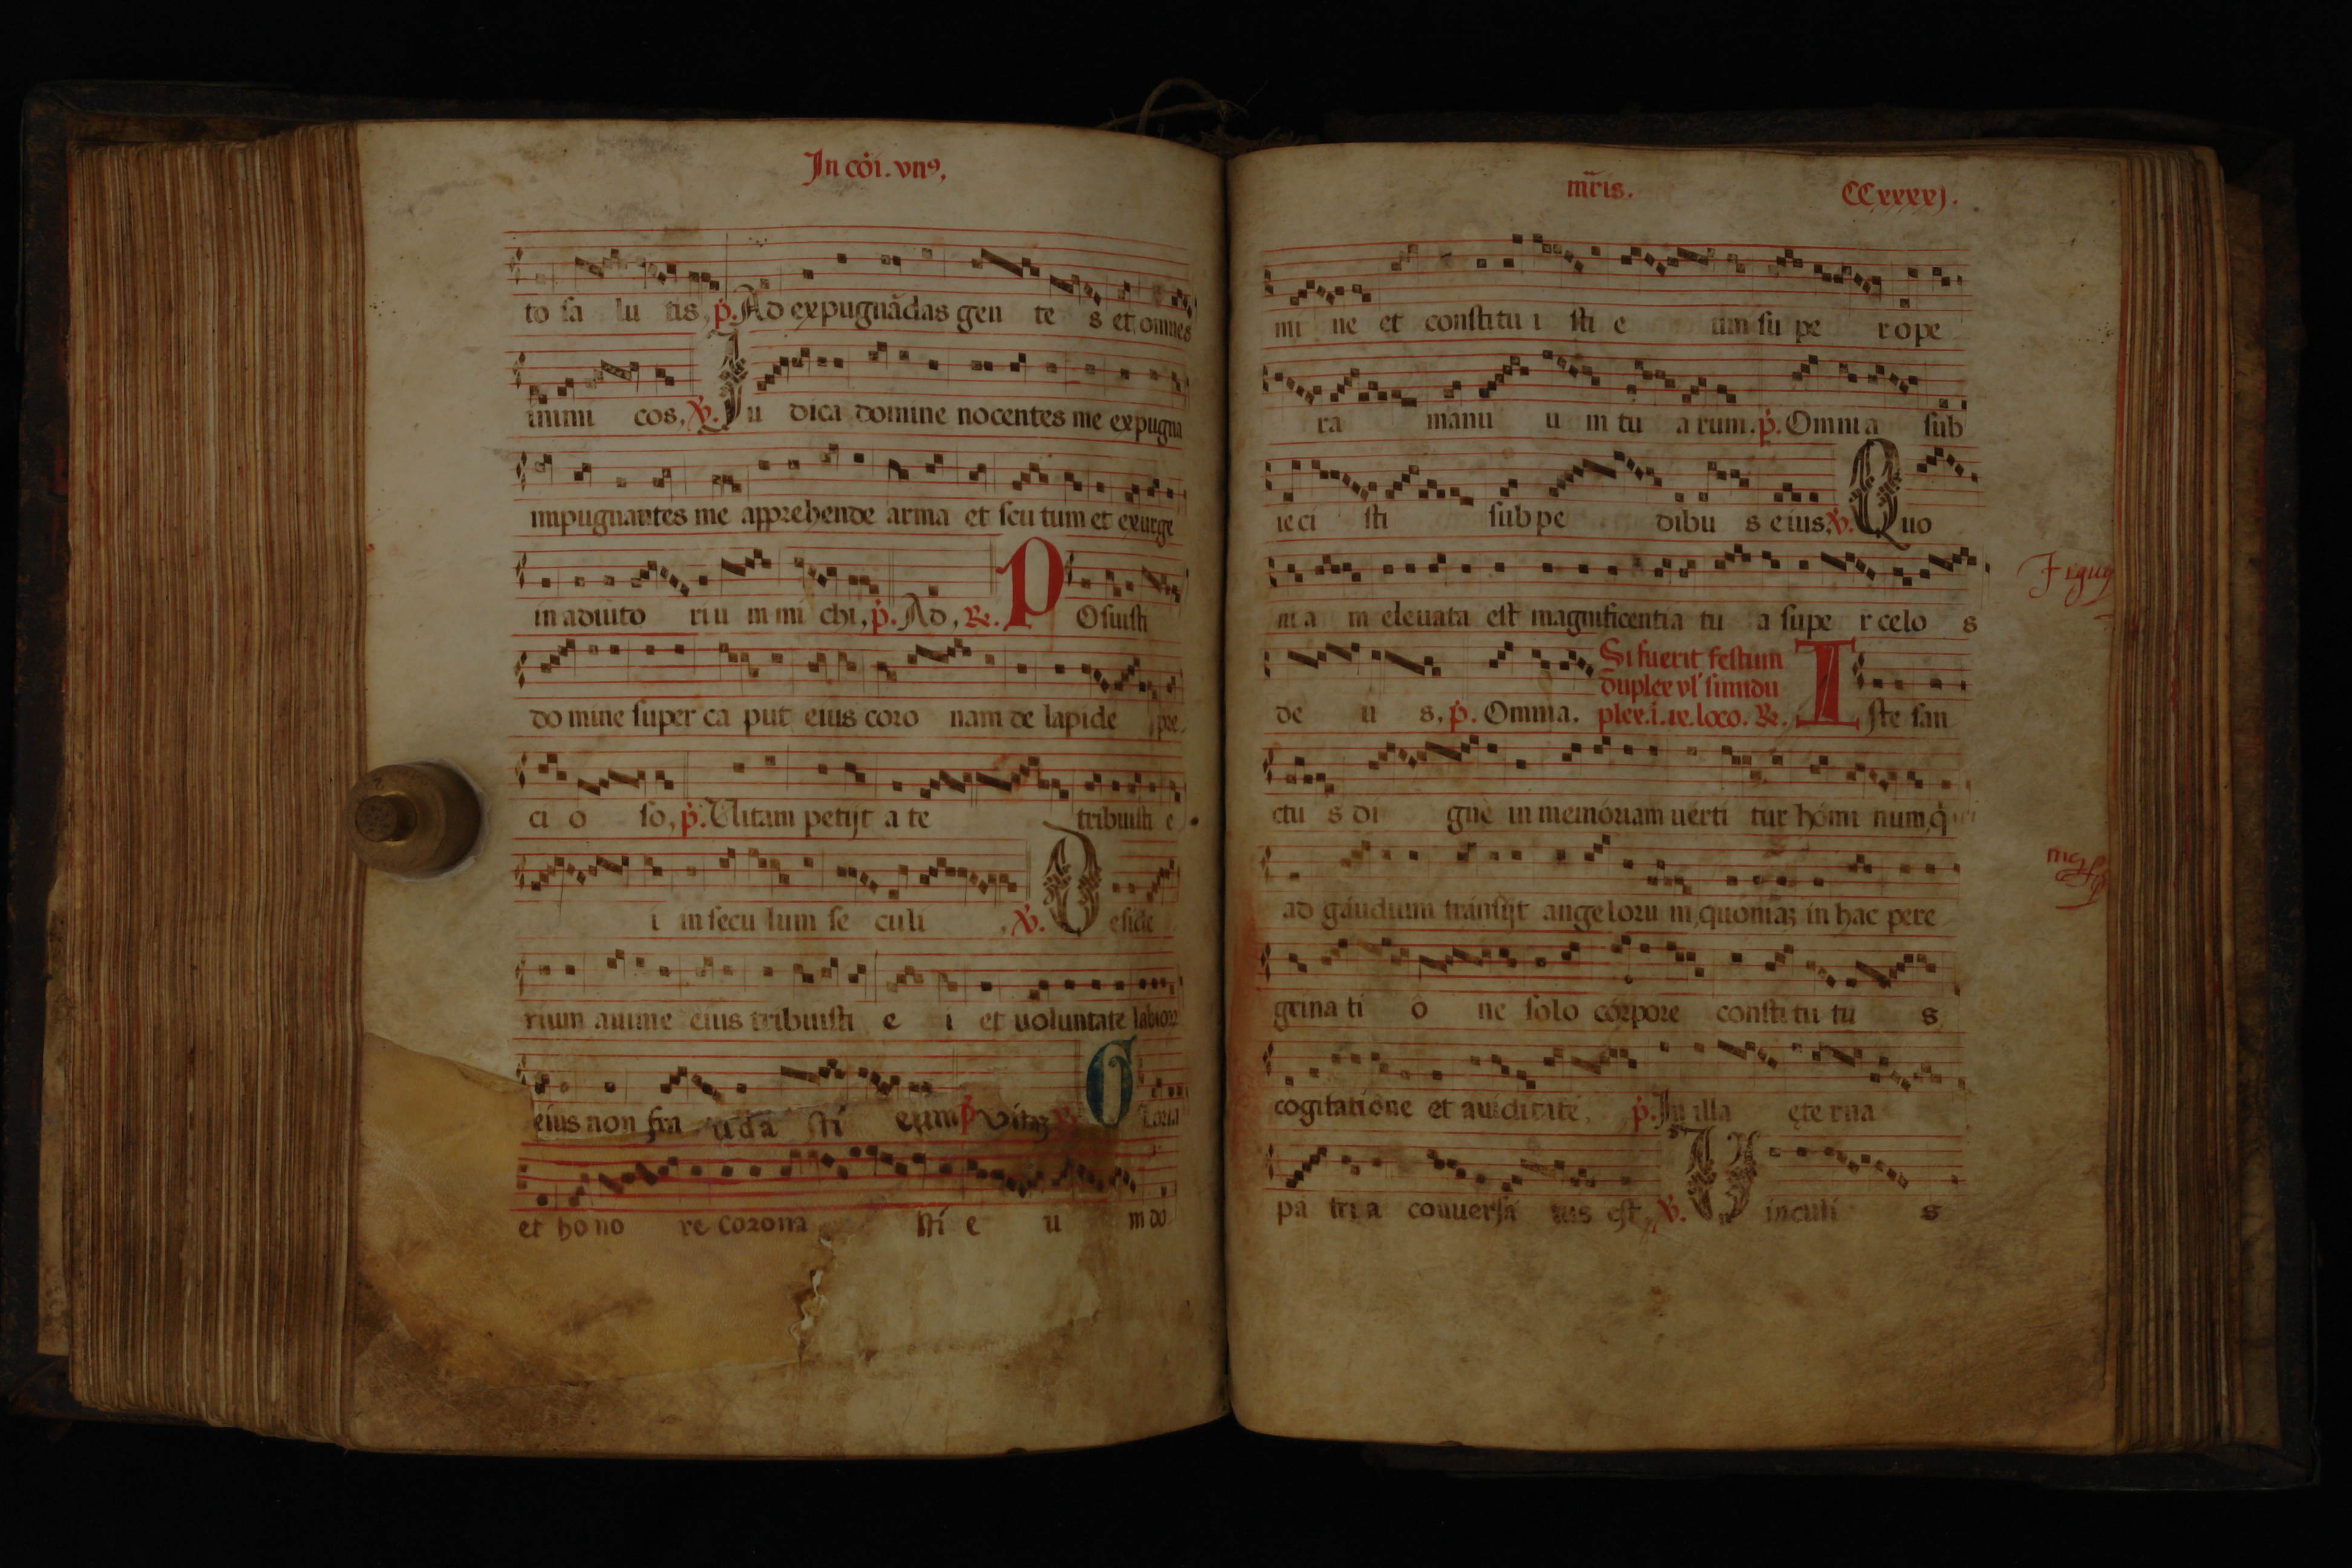 In cōi. vnꝰ,
to sa lu tis, p. Ad expugnādas gen te s et omnes
inimi cos, V. Iu dica domine nocentes me expugna
impugnantes me apprehende arma et scu tum et exurge
in adiuto riu m mi chi, p. Ad, R. P Osuisti
do mine super ca put eius coro nam de lapide pre
ci o so, p. Uitam petijt a te tribuisti e
i in secu lum se culi , V. D eside
rium anime eius tribuisti e i et uoluntate labiorꝝ
eius non fra uda sti eum p vitaʒ R. G loria
et ho no re corona sti e u m do
mr̄is. CCxxxxj.
mi ne et constitu i sti e um su pe r ope
ra manu u m tu a rum. p. Omnia sub
ieci sti sub pe dibu s eius, V. Quo
ni a m eleuata est magnificentia tu a supe r celo s
de u s, p. Omnia. Si fuerit festum
duplex vl' simidu
plex. i. ix. loco. R. I ste san
ctu s di gne in memóriam uérti tur hómi num, q̇
ad gáudium tránsijt angeloru m, quoniaʒ in hac pere
grina ti ó ne solo córpore constitu tu s
cogitatióne et auiditate, p. In illa ęte rna
pa tri a conuersá tus est, V. U inculi s